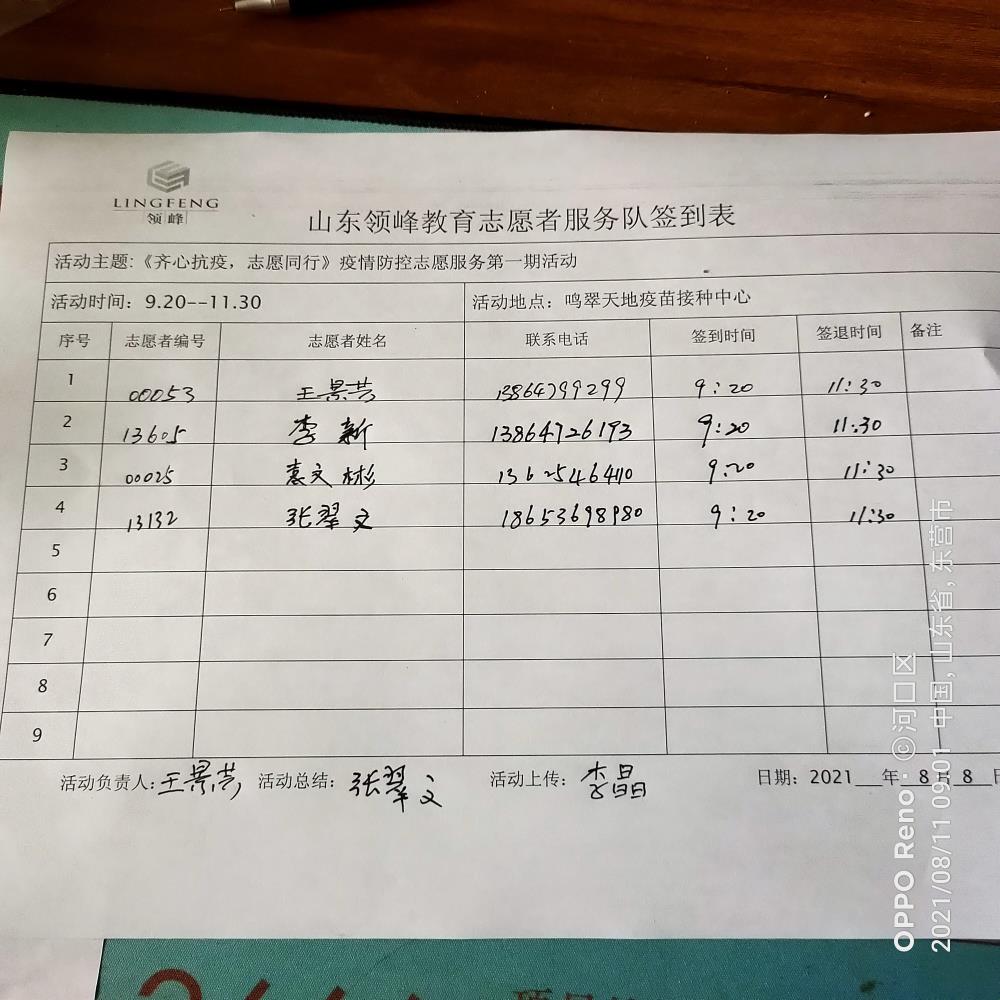 LINGFENG
领峰
山东领峰教育志愿者服务队签到表
活动主题:《齐心抗疫，志愿同行》疫情防控志愿服务第一期活动
活动时间：9.20--11.30 活动地点：鸣翠天地疫苗接种中心
序号 志愿者编号 志愿者姓名 联系电话 签到时间 签退时间 备注
1 00053 王景芸 13864799299 9:20 11:30
2 13605 李新 13864726193 9:20 11:30
3 00025 袁文彬 13625464110 9:20 11:30
4 13132 张翠文 18653698980 9:20 11:30
5
6
7
8
9
活动负责人:王景芸 活动总结：张翠文 活动上传：李晶 日期：2021 年 8 月 8 日
OPPO Reno · ©河口区
2021/08/11 09:01 中国, 山东省, 东营市